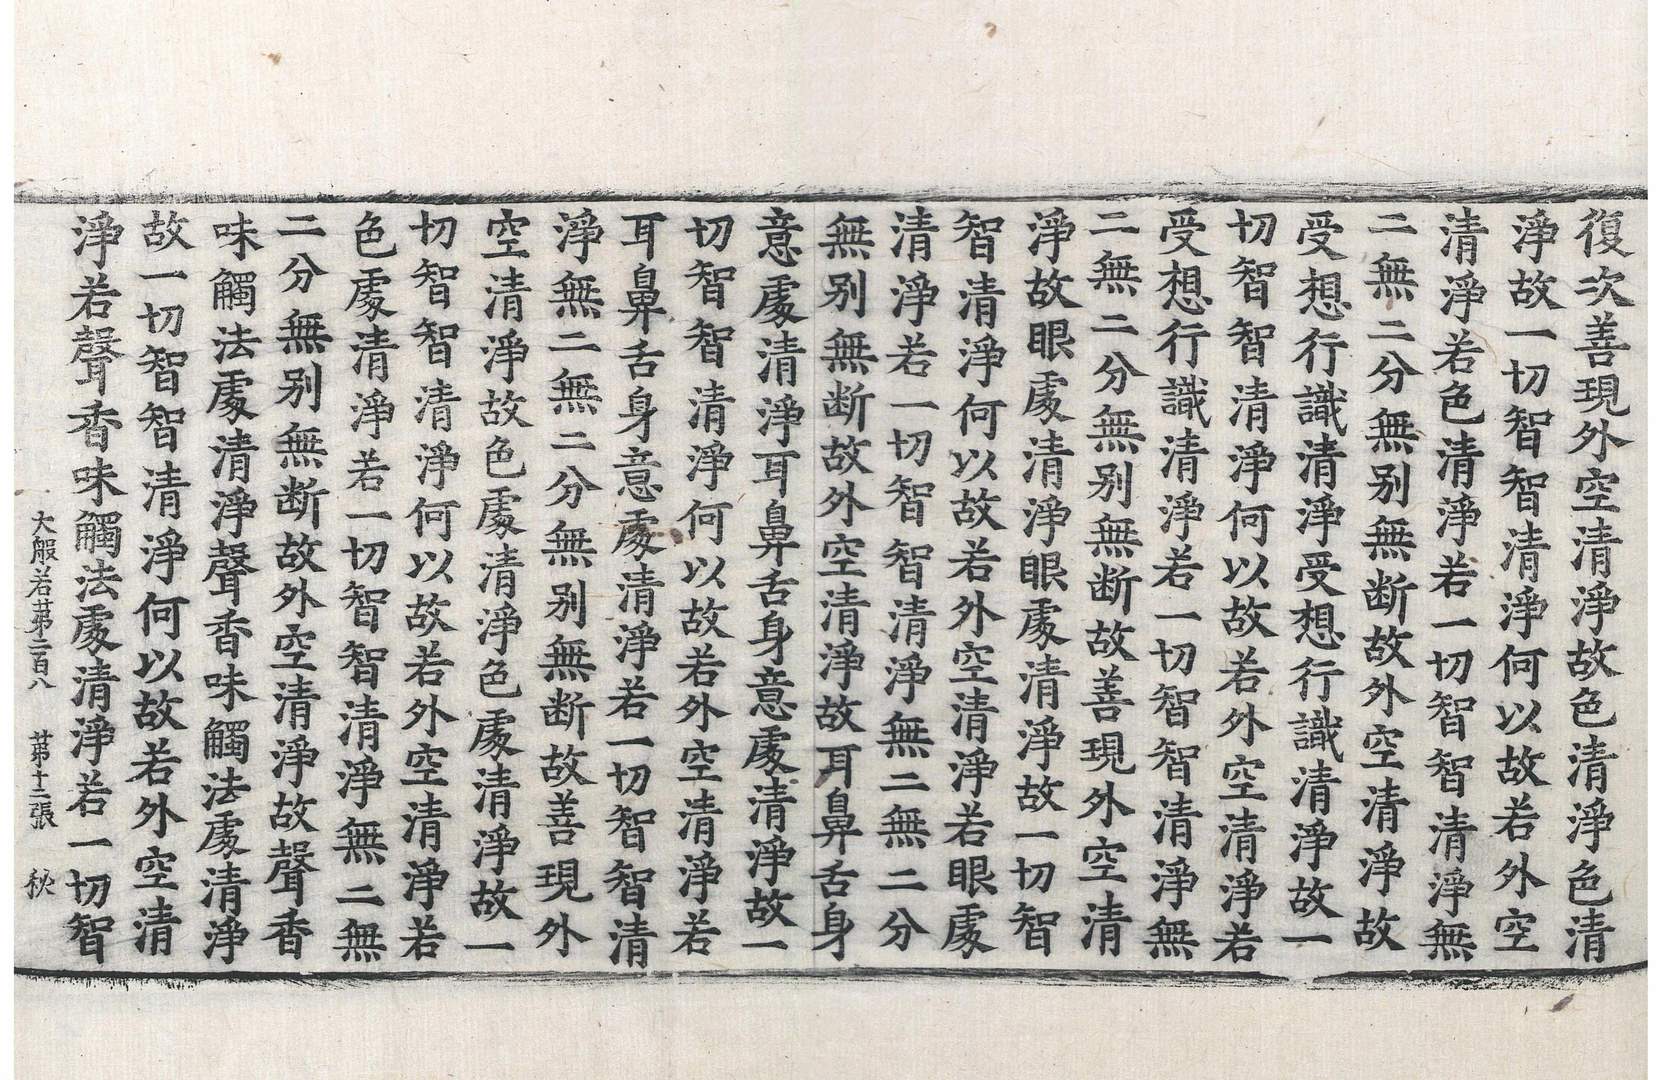 復次善現外空清淨故色清淨色清
淨故一切智智清淨何以故若外空
清淨若色清淨若一切智智清淨無
二無二分無別無斷故外空清淨故
受想行識清淨受想行識清淨故一
切智智清淨何以故若外空清淨若
受想行識清淨若一切智智清淨無
二無二分無別無斷故善現外空清
淨故眼處清淨眼處清淨故一切智
智清淨何以故若外空清淨若眼處
清淨若一切智智清淨無二無二分
無別無斷故外空清淨故耳鼻舌身
意處清淨耳鼻舌身意處清淨故一
切智智清淨何以故若外空清淨若
耳鼻舌身意處清淨若一切智智清
淨無二無二分無別無斷故善現外
空清淨故色處清淨色處清淨故一
切智智清淨何以故若外空清淨若
色處清淨若一切智智清淨無二無
二分無別無斷故外空清淨故聲香
味觸法處清淨聲香味觸法處清淨
故一切智智清淨何以故若外空清
淨若聲香味觸法處清淨若一切智
大般若第二百八 第十二張 秋